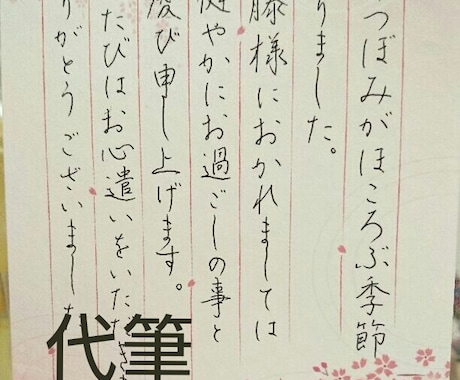 つぼみがほころぶ季節
りました。
藤様におかれましては
健やかにお過ごしの事と
慶び申し上げます。
たびはお心遣いをいただき
りがとうございまし
代筆